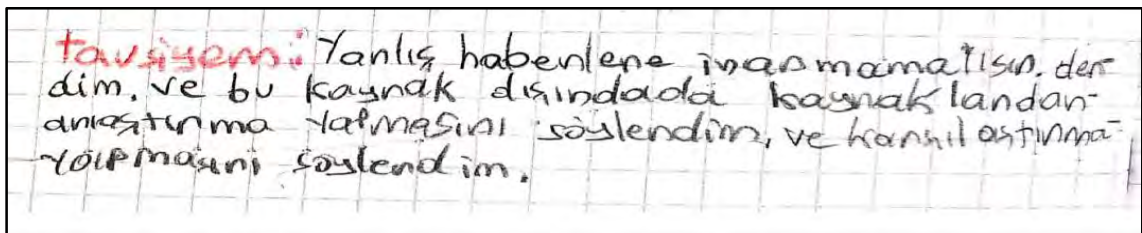 tavsiyem: Yanlış haberlere inanmamalısın. der
dim. ve bu kaynak dışındada kaynaklardan-
araştırma yapmasını söylerdim, ve karşılaştırma-
yapmasını söylerdim.